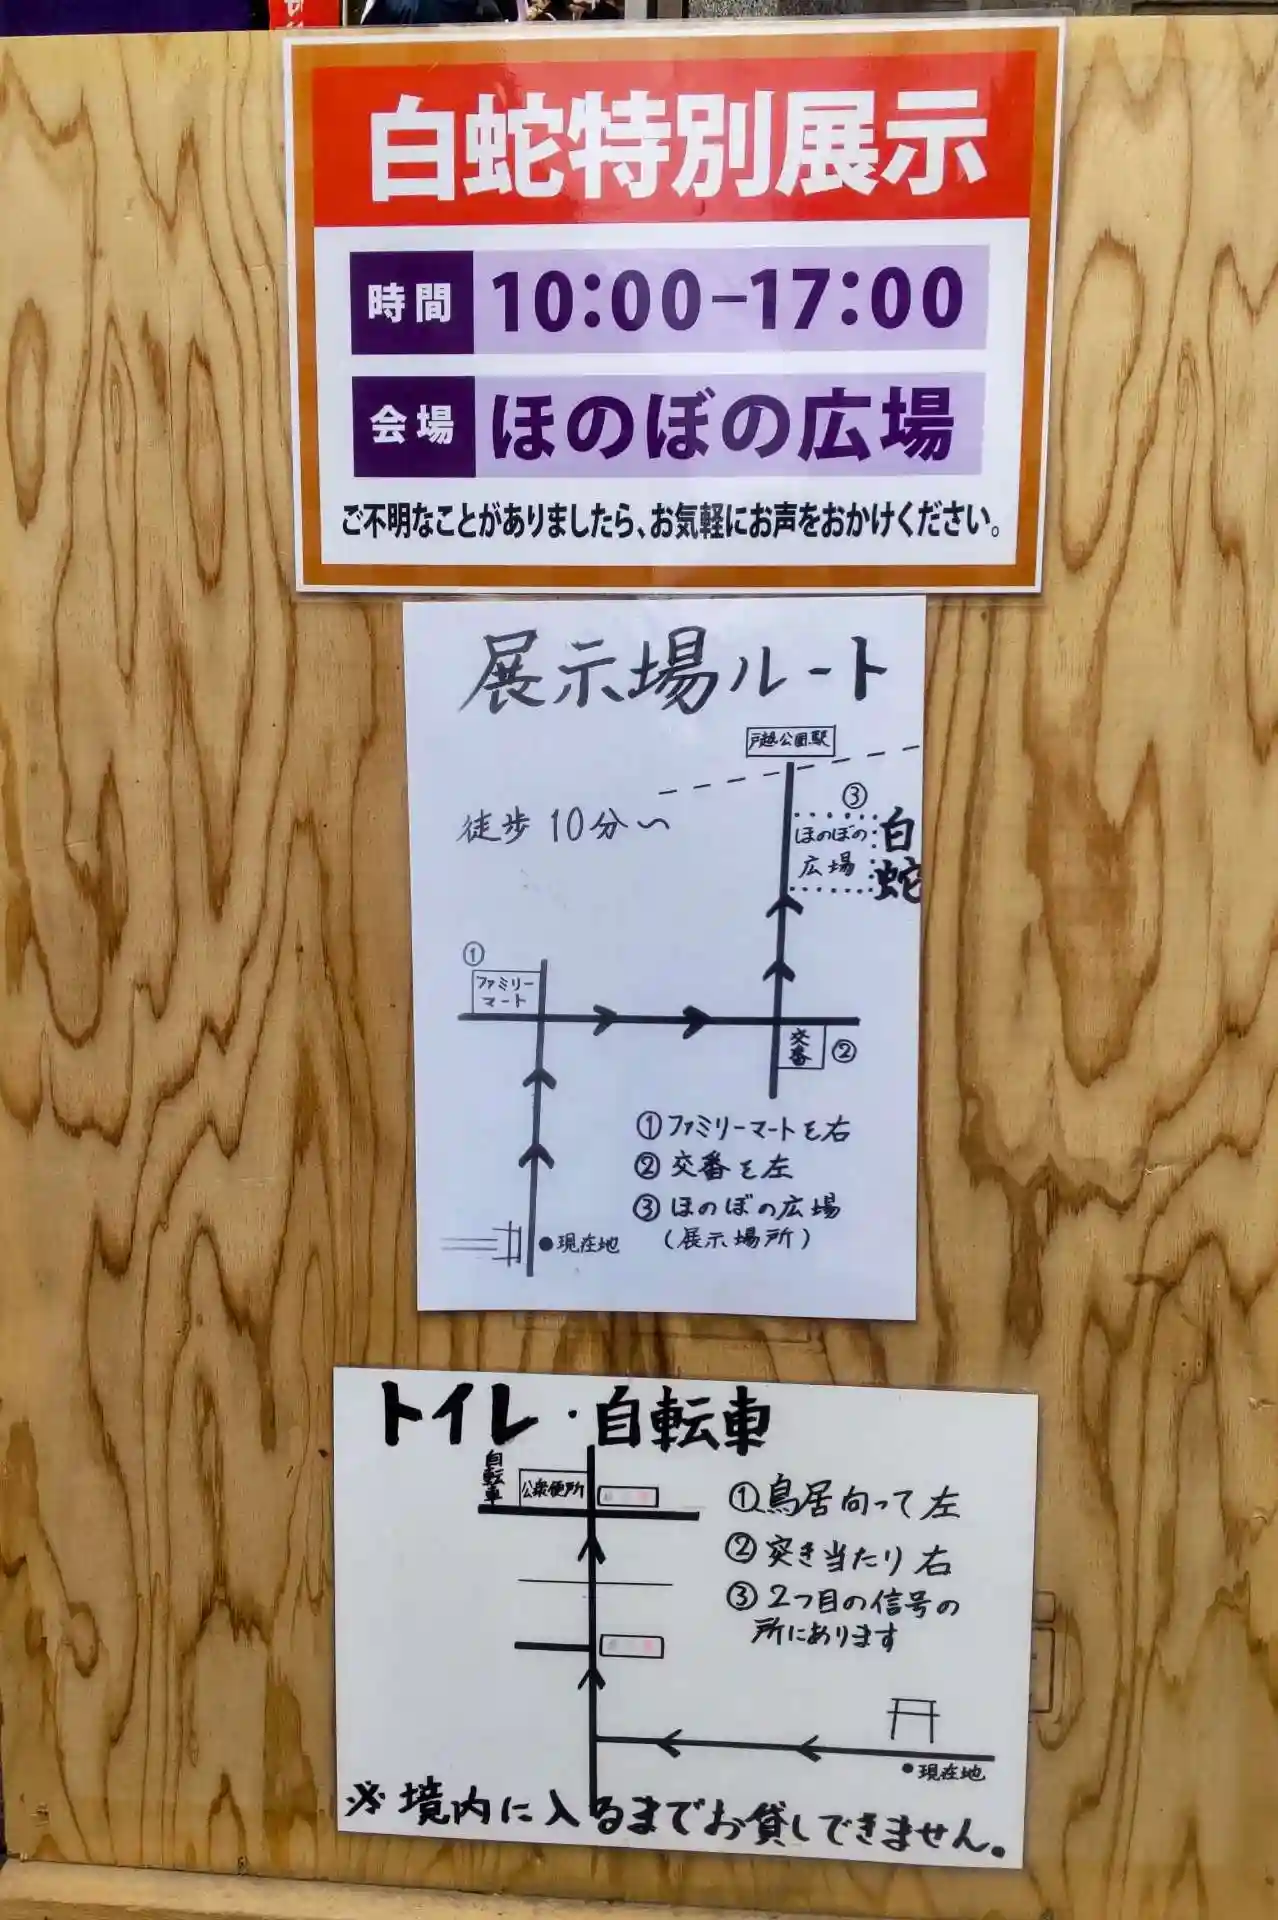 白蛇特別展示
時間 10:00-17:00
会場 ほのぼの広場
ご不明なことがありましたら、お気軽にお声をおかけください。
展示場ルート
戸越公園駅
徒歩10分〜
③
ほのぼの
広場
白蛇
①
ファミリー
マート
交番
②
①ファミリーマートを右
②交番を左
③ほのぼの広場
(展示場所)
●現在地
トイレ・自転車
自転車
公衆便所
①鳥居向って左
②突き当たり右
③2つ目の信号の
所にあります
●現在地
※境内に入るまでお貸しできません。